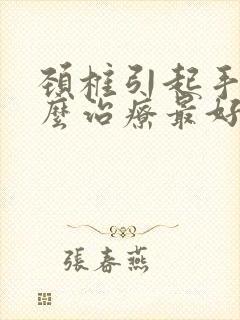 頸椎引起手
麼治療最好
張春燕